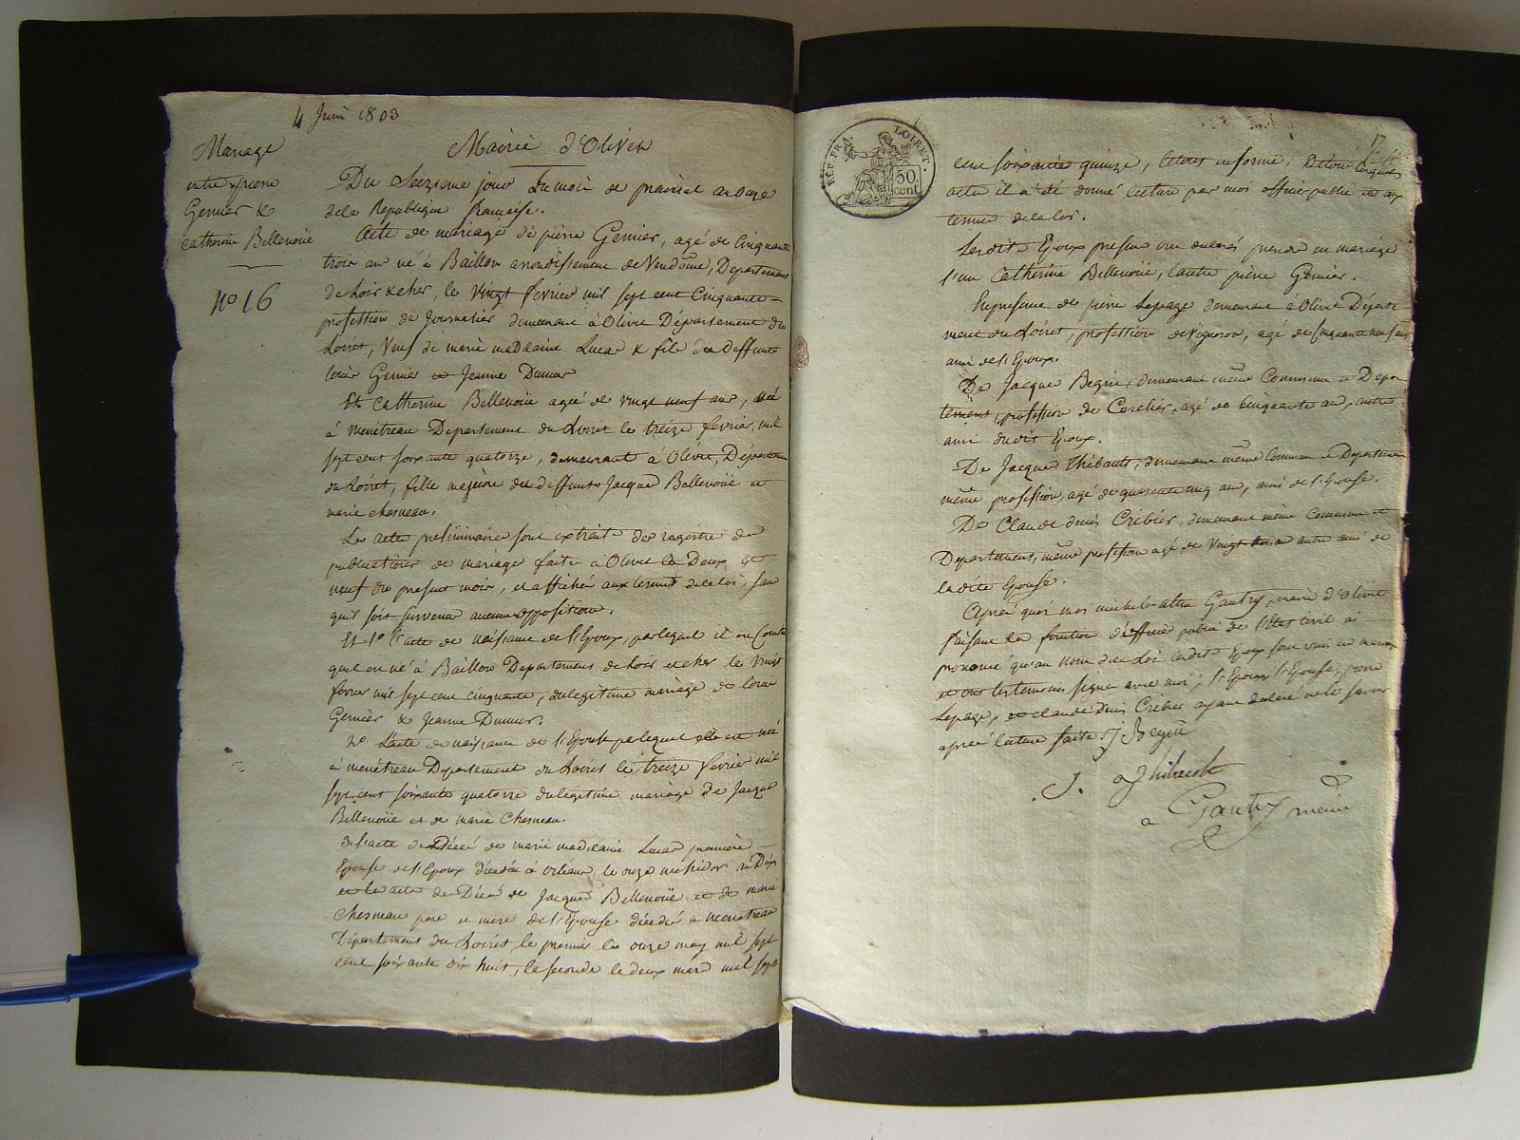 4 Juin 1803
Mariage
entre pierre
Genier &
Catherine Bellenoüe
No 16
Mairie d'Olivet
Du Seizieme jour Du mois de prairial an onze
de la Republique française.
Acte de mariage de pierre Genier, agé de Cinquante
trois ans né à Baillou arrondissement de Vendôme, Departement
de Loir & cher, le vingt fevrier mil sept cent Cinquante
profession de Journalier demeurant à Olivet Département du
Loiret, Veuf de marie madelaine Lucas & fils des deffunts
Genier et Jeanne Dumur
Et Catherine Bellenoüe agée de vingt neuf ans, née
à menétreau Departement du Loiret le treize fevrier mil
sept cent soixante quatorze, demeurant à Olivet, Département
du Loiret, fille majeure des deffunts Jacque Bellenoüe et
marie chesneau.
Les actes préliminaires sont extrait des registre de
publications de mariage faite à Olivet les Deux et
neuf du present mois, et affiché aux termes de la loi, sans
qu'il soit survenu aucune opposition.
Et 1o l'acte de naissance de l'Epoux, par lequel il
qu'il est né à Baillou Departement de Loir et cher le vingt
fevrier mil sept cent cinquante, du legitime mariage de
Genier & Jeanne Dumur.
2o L'acte de naissance de l'Epouse par lequel elle est née
à menétreau Departement du Loiret le treize fevrier mil
sept cent soixante quatorze du legitime mariage de Jacque
Bellenoüe et de marie Chesneau.
3o l'acte de Décés de marie madelaine Lucas premiere
Epouse de l'Epoux décédée à orléans le onze messidor an Dix
et les actes de Décés de Jacque Bellenoüe et de marie
Chesneau pere et mere de l'Epouse décédé à menétreau
Département du Loiret le premier le onze may mil sept
cent soixante dix huit, la seconde le deux mars mil sept
REP. FRA.
LOIRET.
50
cent.
17
cent soixante quinze, le tout en forme, De tous lesquels
acte il a été donné lecture par moi officier public aux
termes de la loi.
Lesdits Epoux present ont declarés prendre en mariage
l'un Catherine Bellenoüe, l'autre pierre Genier.
En presence de pierre Lepage demeurant à Olivet Départe
ment du Loiret, profession de Vigneron, agé de
ami de l'Epoux.
De Jacque Begin, demeurant même Commune et Depar
tement, profession de agé de cinquante ans, autre
ami dudit Epoux.
De Jacque Thibault, demeurant même Commune et Departement
même profession, agé de quarente cinq ans, ami de l'Epouse.
De Claude denis Crébier, demeurant même Commune et
Departement, même profession agé de vingt autre ami de
ladite Epouse.
Après quoi moi Gautry, maire d'olivet
faisant la fonction d'officier public de l'état civil ai
prononcé qu'au nom de la Loi lesdits Epoux sont unis en mariage
et ont les temoins signé avec moi, l'Epoux l'Epouse, pierre
Lepage, et claude Denis Crebier ayant declaré ne le savoir
apres lecture faite. J Begin
J. Thibault
Gautry maire